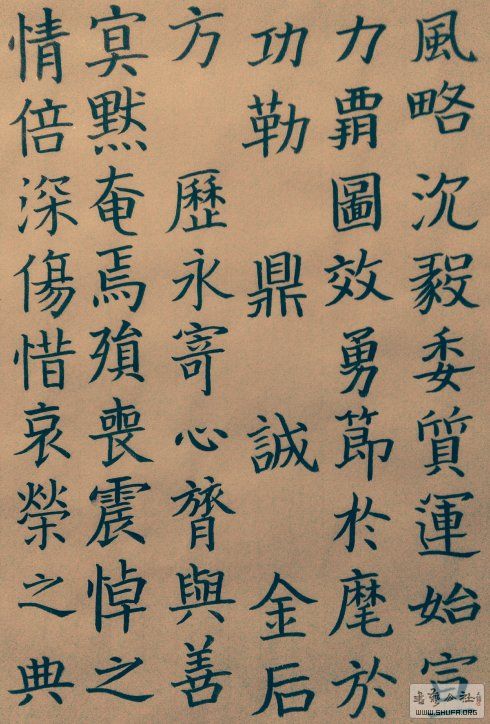 風略沉毅委質運始宣
力覇圖效勇節於麾於
功勒 鼎 誠 金后
方 歷永寄心膂與善
㝠默奄焉殞喪震悼之
情倍深傷惜哀榮之典
WWW.SHUFA.ORG